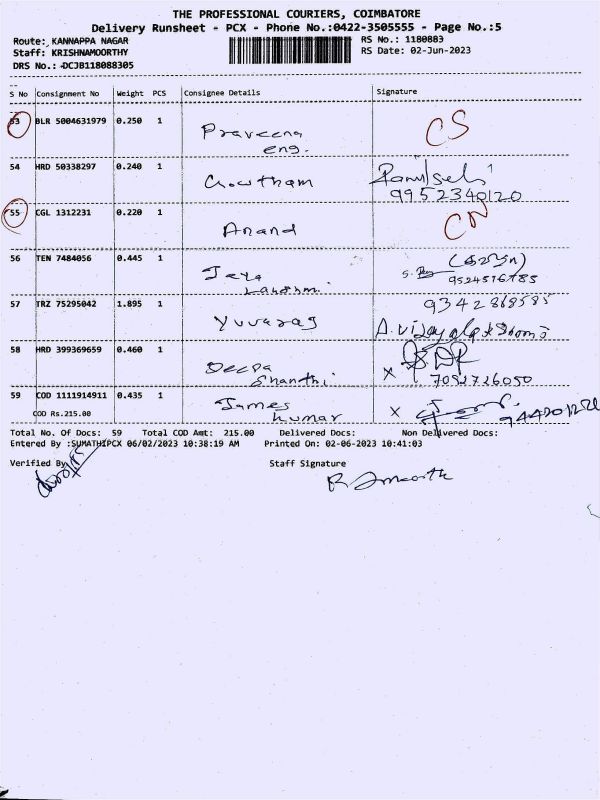 THE PROFESSIONAL COURIERS, COIMBATORE
Delivery Runsheet - PCX - Phone No.:0422-3505555 - Page No.:5
Route: KANNAPPA NAGAR
RS No.: 1180883
Staff: KRISHNAMOORTHY
RS Date: 02-Jun-2023
DRS No.: DCJB118088305
S No Consignment No Weight PCS Consignee Details Signature
53 BLR 5004631979 0.250 1 Praveena CS
eng.
54 HRD 50338297 0.240 1 Gowtham
9952340120
55 CGL 1312231 0.220 1 Anand CN
56 TEN 7484056 0.445 1 Jeya
Lakshmi
57 TRZ 75295042 1.895 1 Yuvaraj
58 HRD 399369659 0.460 1 Deepa
Shanthi
7092726050
59 COD 1111914911 0.435 1 James
COD Rs.215.00 Kumar
Total No. Of Docs: 59 Total COD Amt: 215.00 Delivered Docs: Non Delivered Docs:
Entered By :SUMATHIPCX 06/02/2023 10:38:19 AM Printed On: 02-06-2023 10:41:03
Verified By Staff Signature